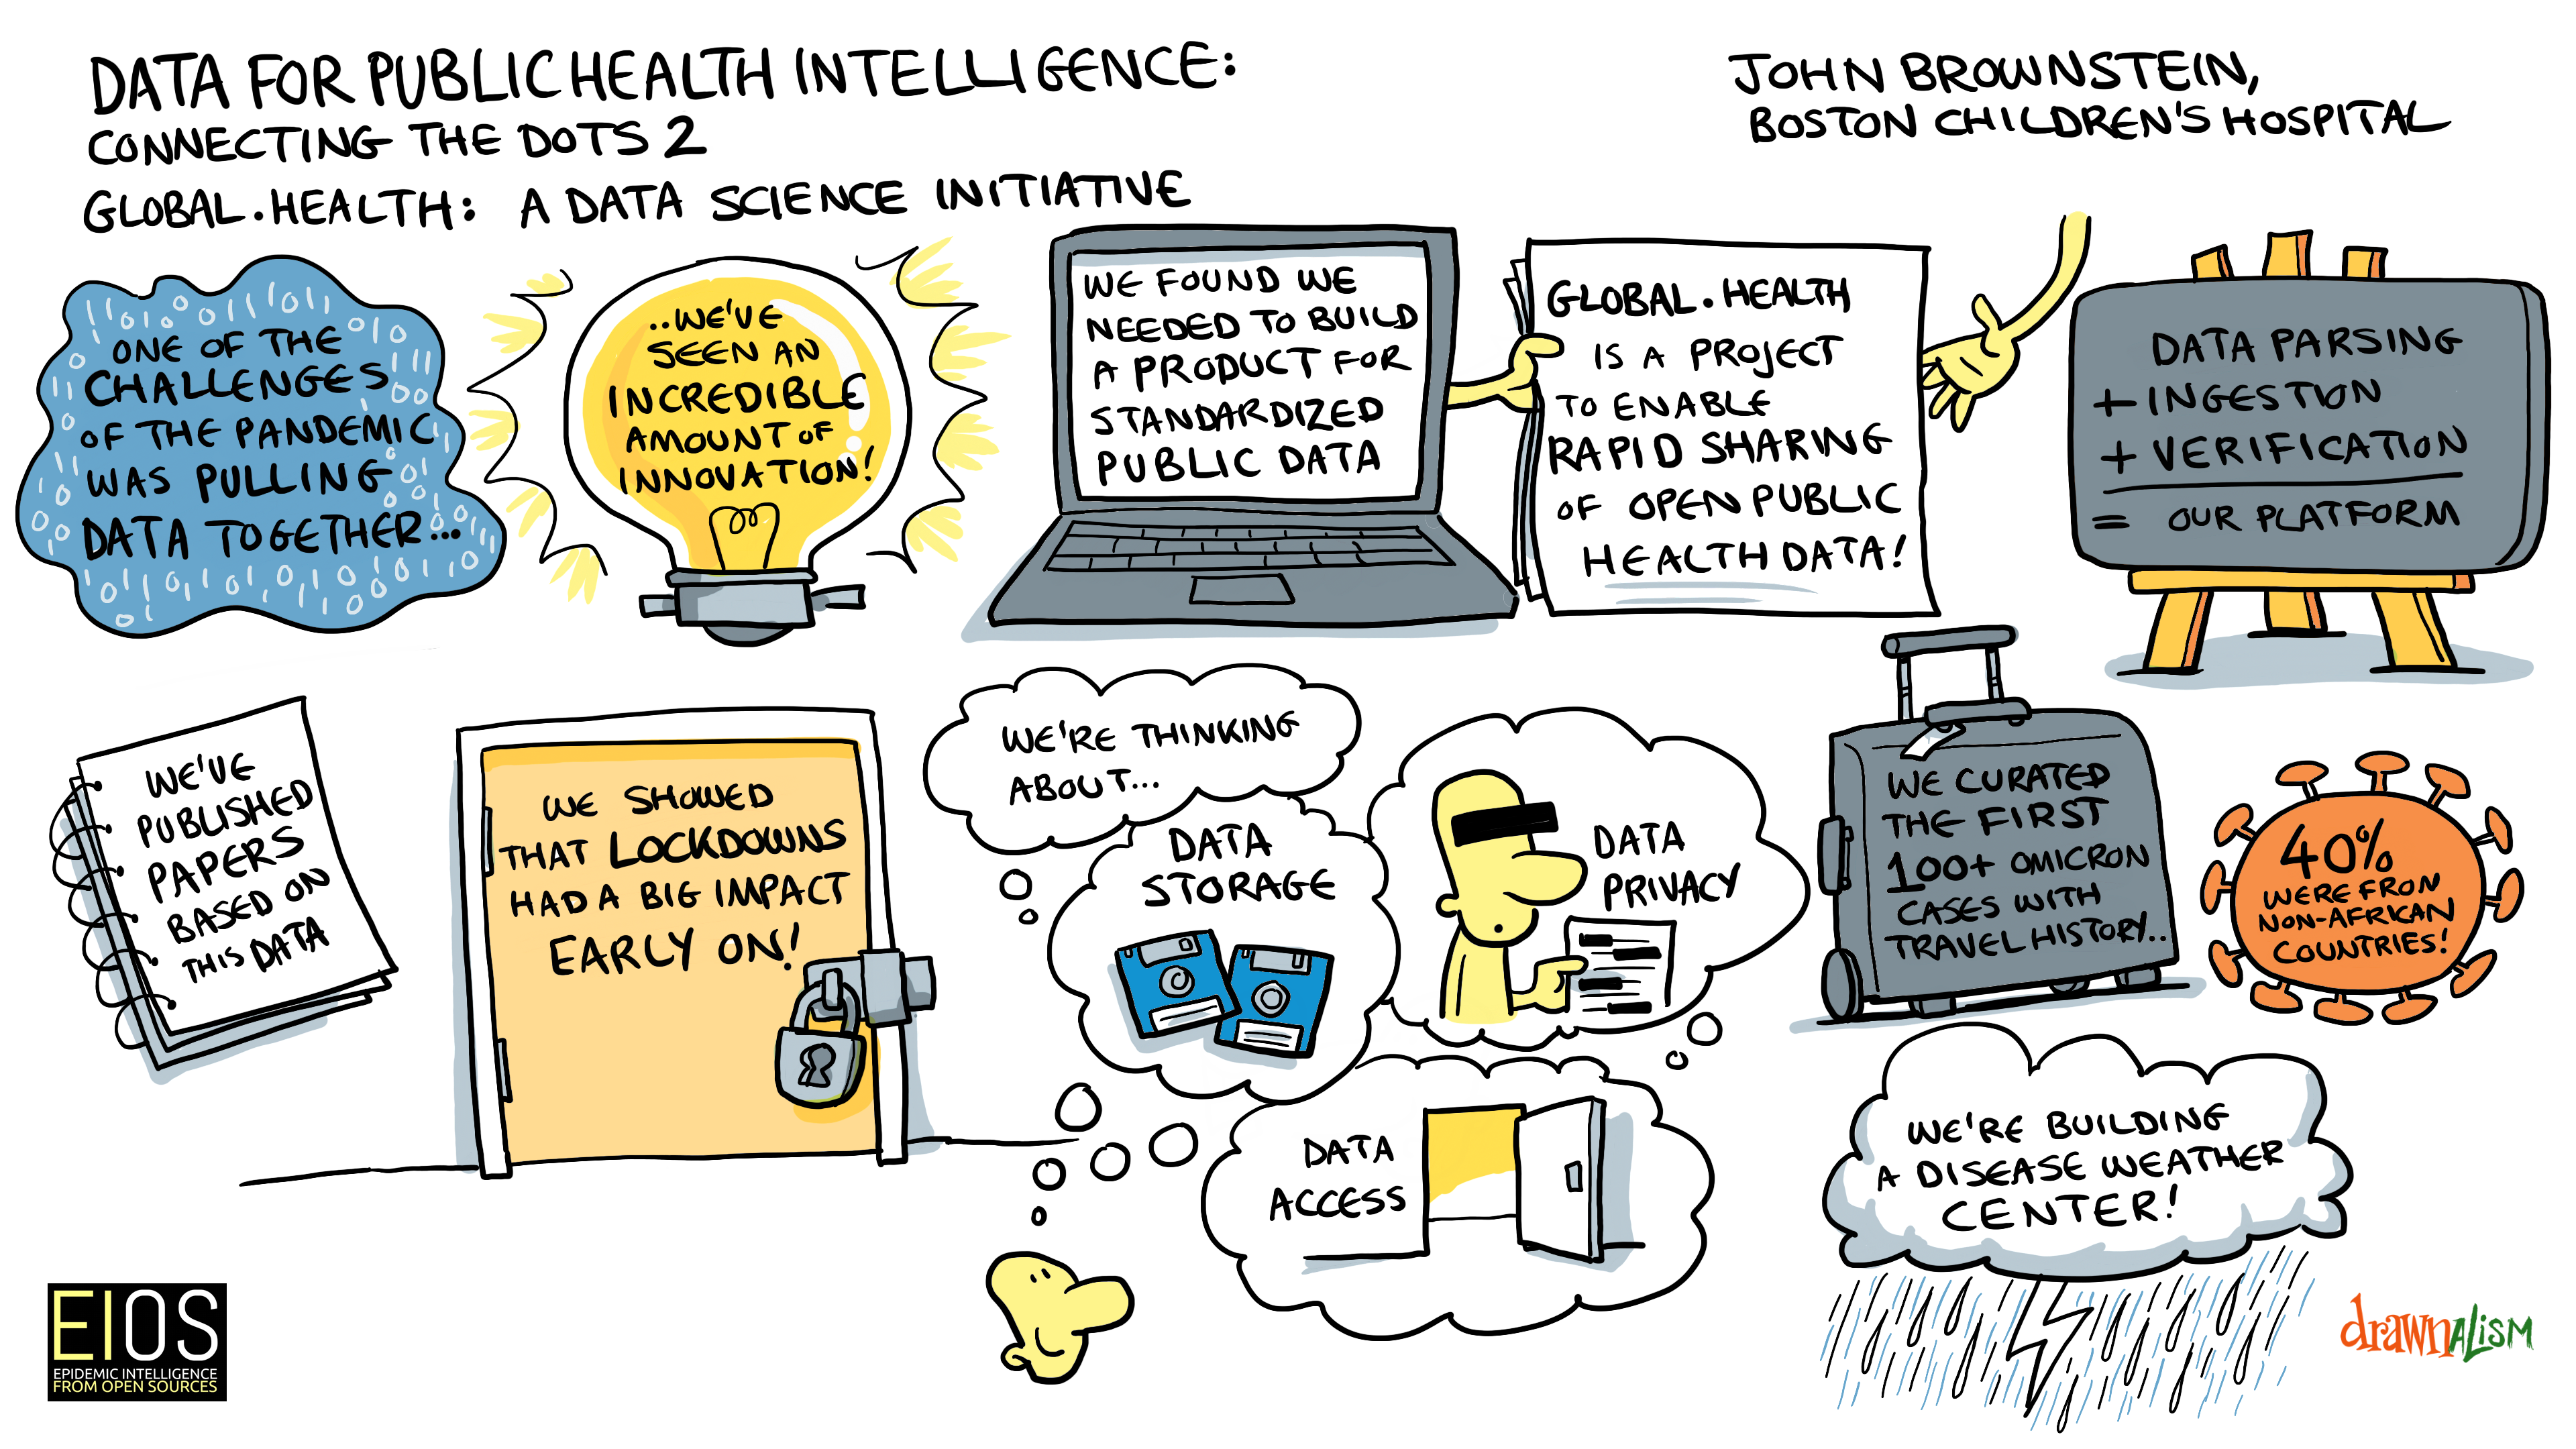 DATA FOR PUBLIC HEALTH INTELLIGENCE:
CONNECTING THE DOTS 2
GLOBAL.HEALTH: A DATA SCIENCE INITIATIVE
JOHN BROWNSTEIN,
BOSTON CHILDREN'S HOSPITAL
ONE OF THE
CHALLENGES
OF THE PANDEMIC
WAS PULLING
DATA TOGETHER...
..WE'VE
SEEN AN
INCREDIBLE
AMOUNT OF
INNOVATION!
WE FOUND WE
NEEDED TO BUILD
A PRODUCT FOR
STANDARDIZED
PUBLIC DATA
GLOBAL.HEALTH
IS A PROJECT
TO ENABLE
RAPID SHARING
OF OPEN PUBLIC
HEALTH DATA!
DATA PARSING
+ INGESTION
+ VERIFICATION
= OUR PLATFORM
WE'VE
PUBLISHED
PAPERS
BASED ON
THIS DATA
WE SHOWED
THAT LOCKDOWNS
HAD A BIG IMPACT
EARLY ON!
WE'RE THINKING
ABOUT...
DATA
STORAGE
DATA
PRIVACY
DATA
ACCESS
WE CURATED
THE FIRST
100+ OMICRON
CASES WITH
TRAVEL HISTORY..
40%
WERE FROM
NON-AFRICAN
COUNTRIES!
WE'RE BUILDING
A DISEASE WEATHER
CENTER!
EIOS
EPIDEMIC INTELLIGENCE
FROM OPEN SOURCES
drawnALiSM